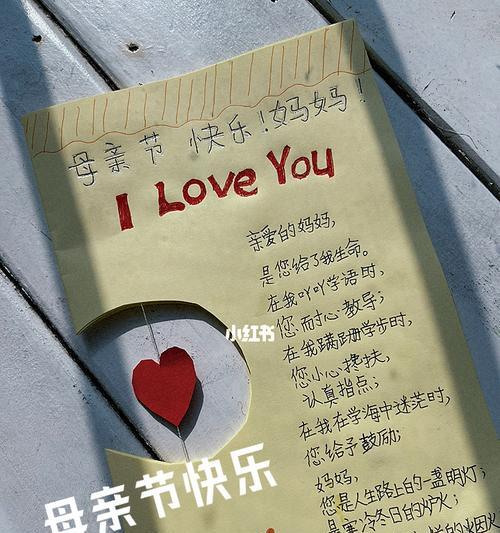 母亲节 快乐！妈妈！
I Love You
亲爱的妈妈，
是您给了我生命。
在我吖吖学语时，
您耐心教导；
在我蹒跚学步时，
您小心搀扶，
认真指点；
在我在学海中迷茫时，
您给予鼓励；
妈妈，
您是人生路上的一盏明灯；
是寒冷冬日的炉火；
小红书
母亲节快乐